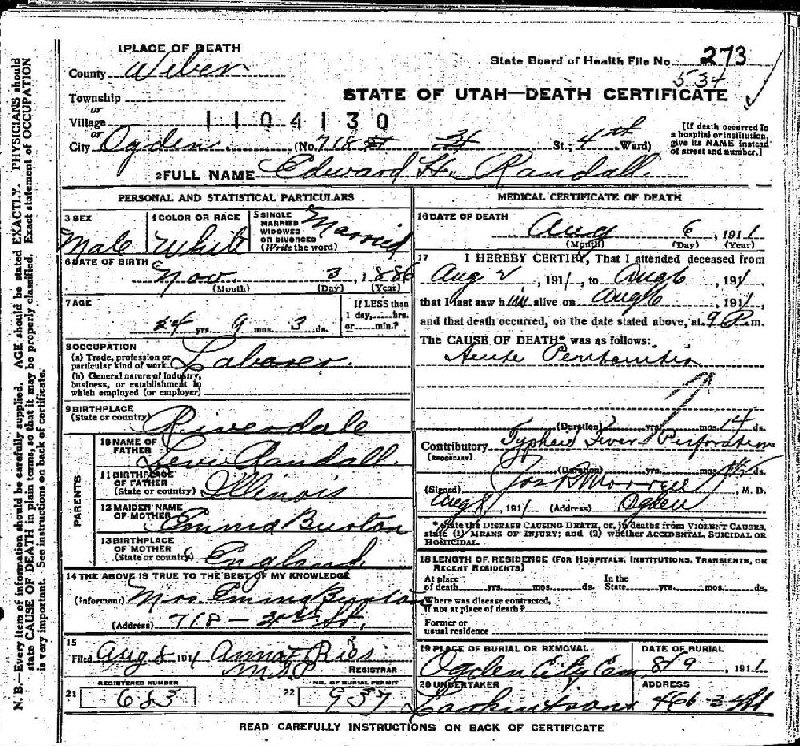 1 PLACE OF DEATH
County Weber
State Board of Health File No. 273
534
Township
or
Village
1104130
STATE OF UTAH—DEATH CERTIFICATE
or
City Ogden (No. 718 St.; 4th Ward)
[If death occurred in a hospital or institution, give its NAME instead of street and number.]
2 FULL NAME Edward H. Randall
PERSONAL AND STATISTICAL PARTICULARS
3 SEX
Male
4 COLOR OR RACE
White
5 SINGLE
MARRIED
WIDOWED
OR DIVORCED
(Write the word)
Married
6 DATE OF BIRTH
Nov 3, 1886
(Month) (Day) (Year)
7 AGE
24 yrs. 9 mos. 3 ds.
If LESS than
1 day, hrs.
or min.?
8 OCCUPATION
(a) Trade, profession or
particular kind of work Laborer
(b) General nature of industry,
business, or establishment in
which employed (or employer)
9 BIRTHPLACE
(State or country) Riverdale
PARENTS
10 NAME OF
FATHER Levi Randall
11 BIRTHPLACE
OF FATHER
(State or country) Illinois
12 MAIDEN NAME
OF MOTHER Emma Burton
13 BIRTHPLACE
OF MOTHER
(State or country) England
14 THE ABOVE IS TRUE TO THE BEST OF MY KNOWLEDGE
(Informant) Mrs. Emma Burton
(Address) 718 - St.
15
Filed Aug 8 191 Anna Ries
REGISTRAR
REGISTERED NUMBER
21 683
NO. OF BURIAL PERMIT
22 937
MEDICAL CERTIFICATE OF DEATH
16 DATE OF DEATH
Aug 6, 1911
(Month) (Day) (Year)
17 I HEREBY CERTIFY, That I attended deceased from
Aug 2, 1911, to Aug 6, 1911
that I last saw him alive on Aug 6, 1911
and that death occurred, on the date stated above, at 9 P.m.
The CAUSE OF DEATH* was as follows:
Acute Peritonitis
(Duration) yrs. mos. 14 ds.
Contributory Typhoid Fever Perforation
(Duration) yrs. mos. ds.
(Signed) Jos R Morrell, M. D.
Aug 8, 1911 (Address) Ogden
*State the DISEASE CAUSING DEATH, or, in deaths from VIOLENT CAUSES,
state (1) MEANS OF INJURY; and (2) whether ACCIDENTAL, SUICIDAL OR
HOMICIDAL.
18 LENGTH OF RESIDENCE (FOR HOSPITALS, INSTITUTIONS, TRANSIENTS, OR
RECENT RESIDENTS)
At place
of death yrs. mos. ds.
In the
State yrs. mos. ds.
Where was disease contracted,
If not at place of death?
Former or
usual residence
19 PLACE OF BURIAL OR REMOVAL
Ogden City Cem
DATE OF BURIAL
8/9, 1911
20 UNDERTAKER
Larkin & Sons
ADDRESS
466-24 St
READ CAREFULLY INSTRUCTIONS ON BACK OF CERTIFICATE
N. B.—Every item of information should be carefully supplied. AGE should be stated EXACTLY. PHYSICIANS should
state CAUSE OF DEATH in plain terms, so that it may be properly classified. Exact statement of OCCUPATION
is very important. See instructions on back of certificate.